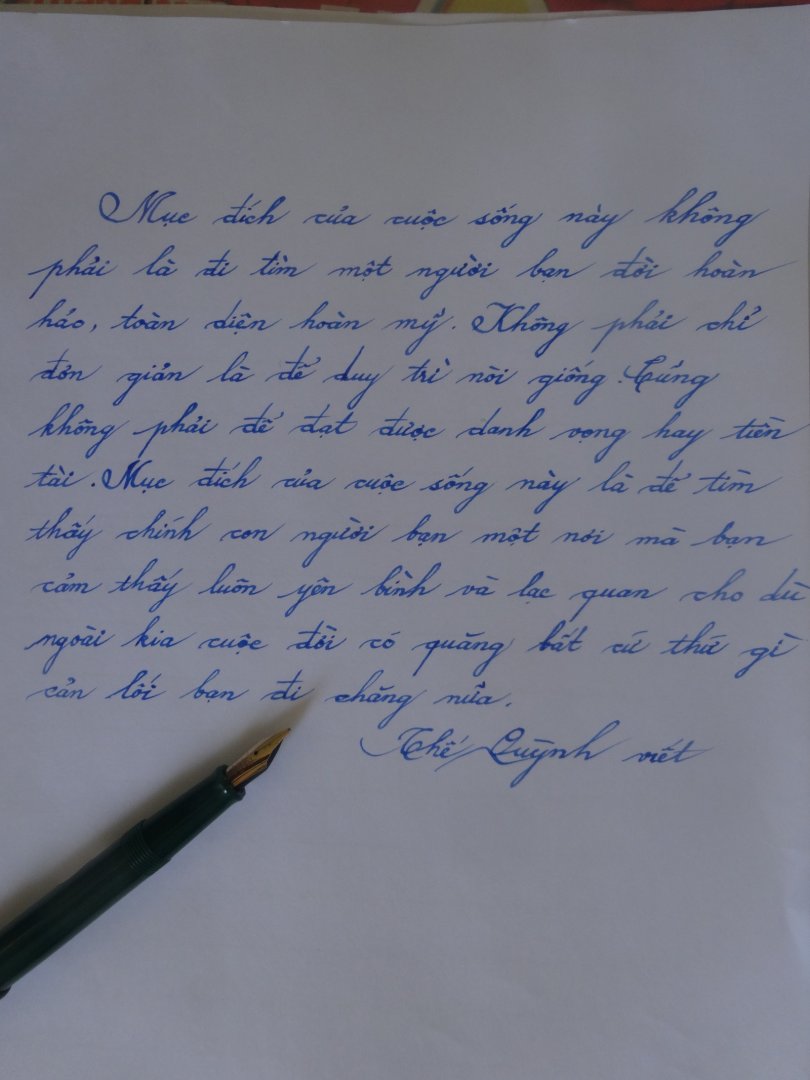 Mục đích của cuộc sống này không
phải là đi tìm một người bạn đời hoàn
hảo, toàn diện hoàn mỹ. Không phải chỉ
đơn giản là để duy trì nòi giống. Cũng
không phải để đạt được danh vọng hay tiền
tài. Mục đích của cuộc sống này là để tìm
thấy chính con người bạn một nơi mà bạn
cảm thấy luôn yên bình và lạc quan cho dù
ngoài kia cuộc đời có quăng bất cứ thứ gì
cản lối bạn đi chăng nữa.
Thế Quỳnh viết